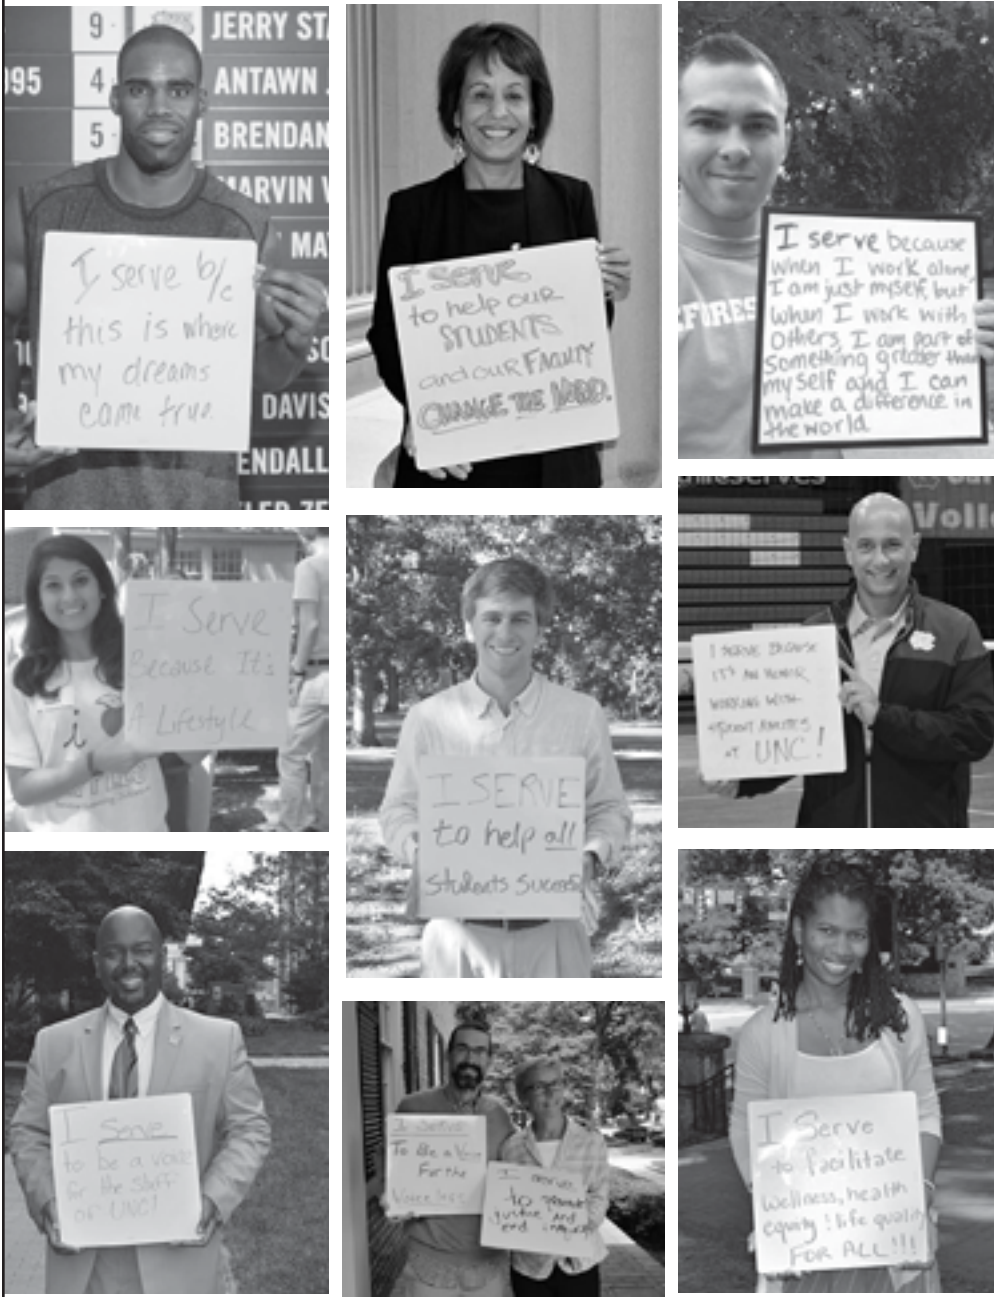 9
JERRY STA
095
4
ANTAWN J
5
BRENDAN
MARVIN W
MA
DAVIS
ENDALL
LER ZE
I serve b/c
this is where
my dreams
came true.
I serve
to help our
STUDENTS
and our FACULTY
CHANGE THE WORLD.
FORES
I serve because
when I work alone,
I am just myself, but
when I work with
others, I am part of
something greater than
myself and I can
make a difference in
the world
I Serve
Because It's
A Lifestyle
i
I SERVE
to help all
students succeed
Volle
I SERVE BECAUSE
IT'S AN HONOR
WORKING WITH
STUDENT ATHLETES
AT UNC!
I Serve
to be a voice
for the staff
of UNC!
I SERVE
To Be a Voice
For the
Voiceless
I serve
to promote
justice and
end inequality
I Serve
to facilitate
wellness, health
equity ! life quality
FOR ALL!!!